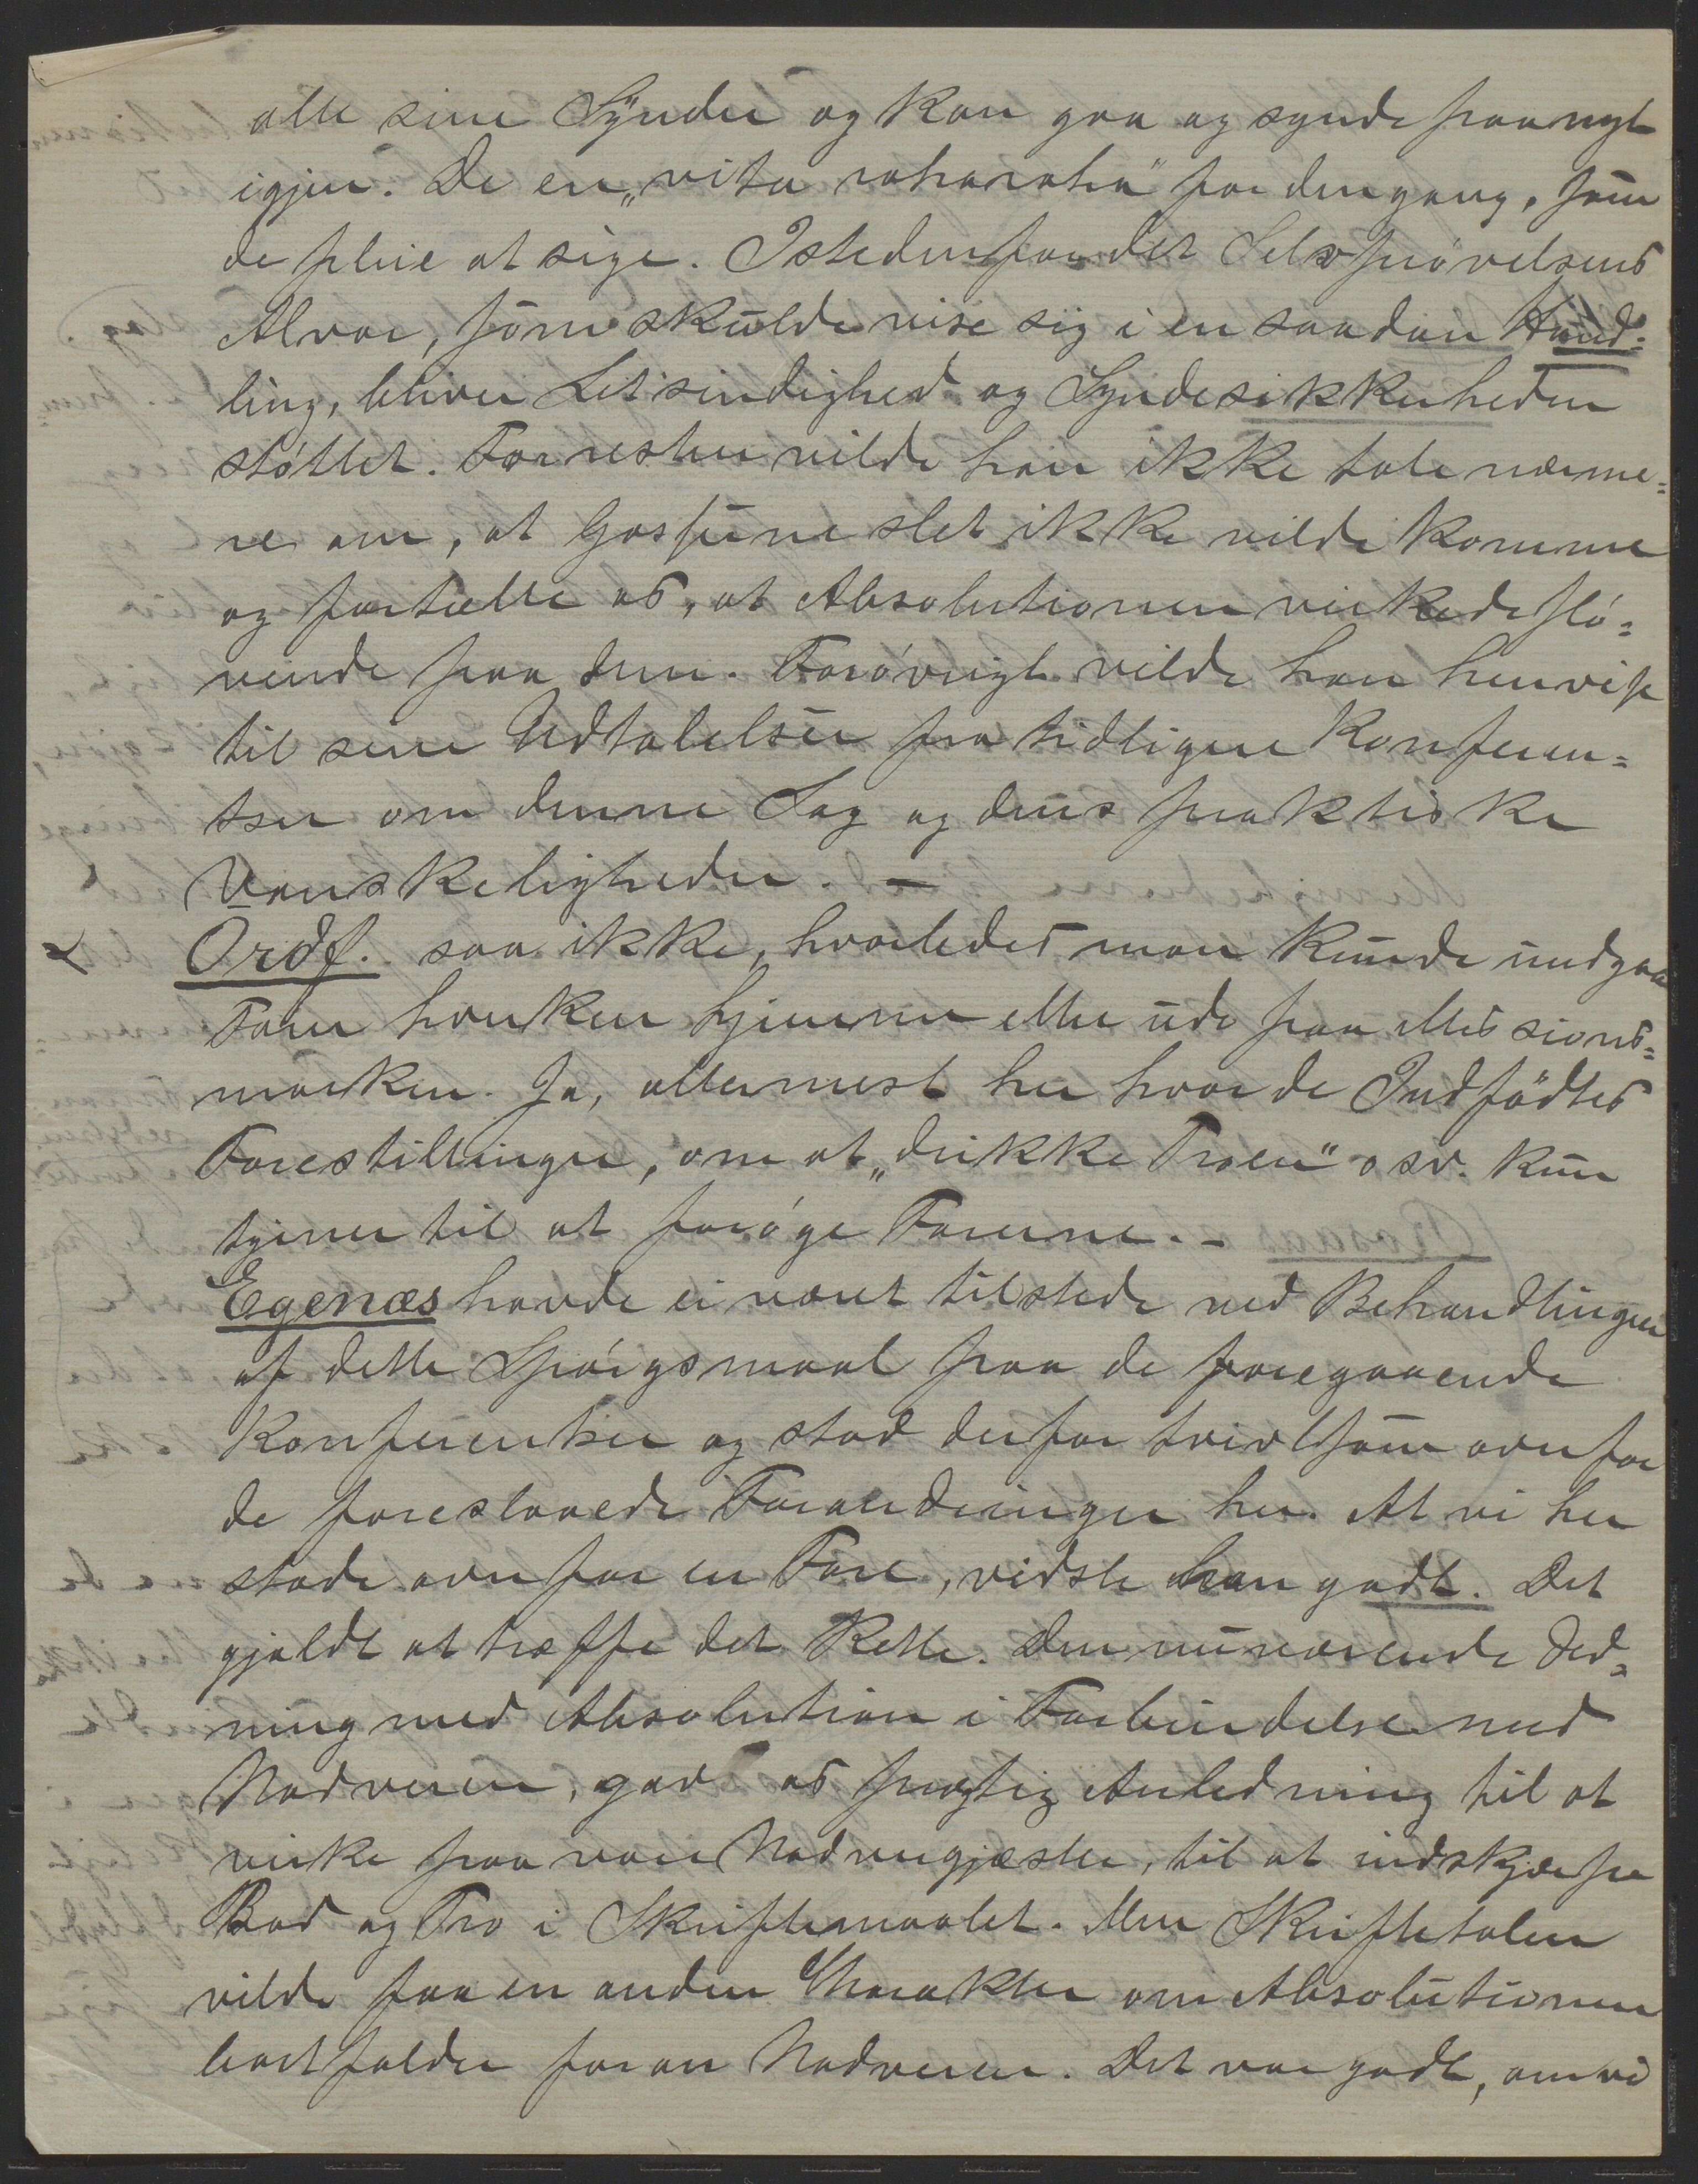 alle sine Synder og kan gaa og synde paa nyt
igjen. De er „vita raharaha" for dengang, som
de pleie at sige. Istedenfor det Selvprøvelsens
Alvor, som skulde vise sig i en saadan Hand-
ling, bliver Letsindighed og Syndesikkerheden
støttet. Forresten vilde han ikke tale nærme-
re om, at Gasserne slet ikke vilde komme
og fortælle os, at Absolutionen virkede slø-
vende paa dem. Forøvrigt vilde han henvise
til sine Udtalelser fra tidligere Konferen-
tser om denne Sag og dens praktiske
Vanskeligheder. –
Ordf. saa ikke, hvorledes man kunde undgaa
Faren hverken hjemme eller ude paa Missions-
marken. Ja, allermest her hvor de Indfødtes
Forestillinger, om at „drikke Troen" osv. kun
tjener til at forøge Farerne. –
Egenæs havde ei været tilstede ved Behandlingen
af dette Spørgsmaal paa de foregaaende
Konferentser og stod derfor tvivlsom overfor
de foreslaaede Forandringer her. At vi her
stode overfor en Fare, vidste han godt. Det
gjaldt at træffe det Rette. Den nuværende Ord-
ning med Absolution i Forbindelse med
Nadveren, gav os prægtig Anledning til at
virke paa vore Nadvergjæster, til at indskjærpe
Bod og Tro i Skriftemaalet. Men Skriftetalen
vilde faa en anden Charakter om Absolutionen
bortfalder foran Nadveren. Det var godt, om vi